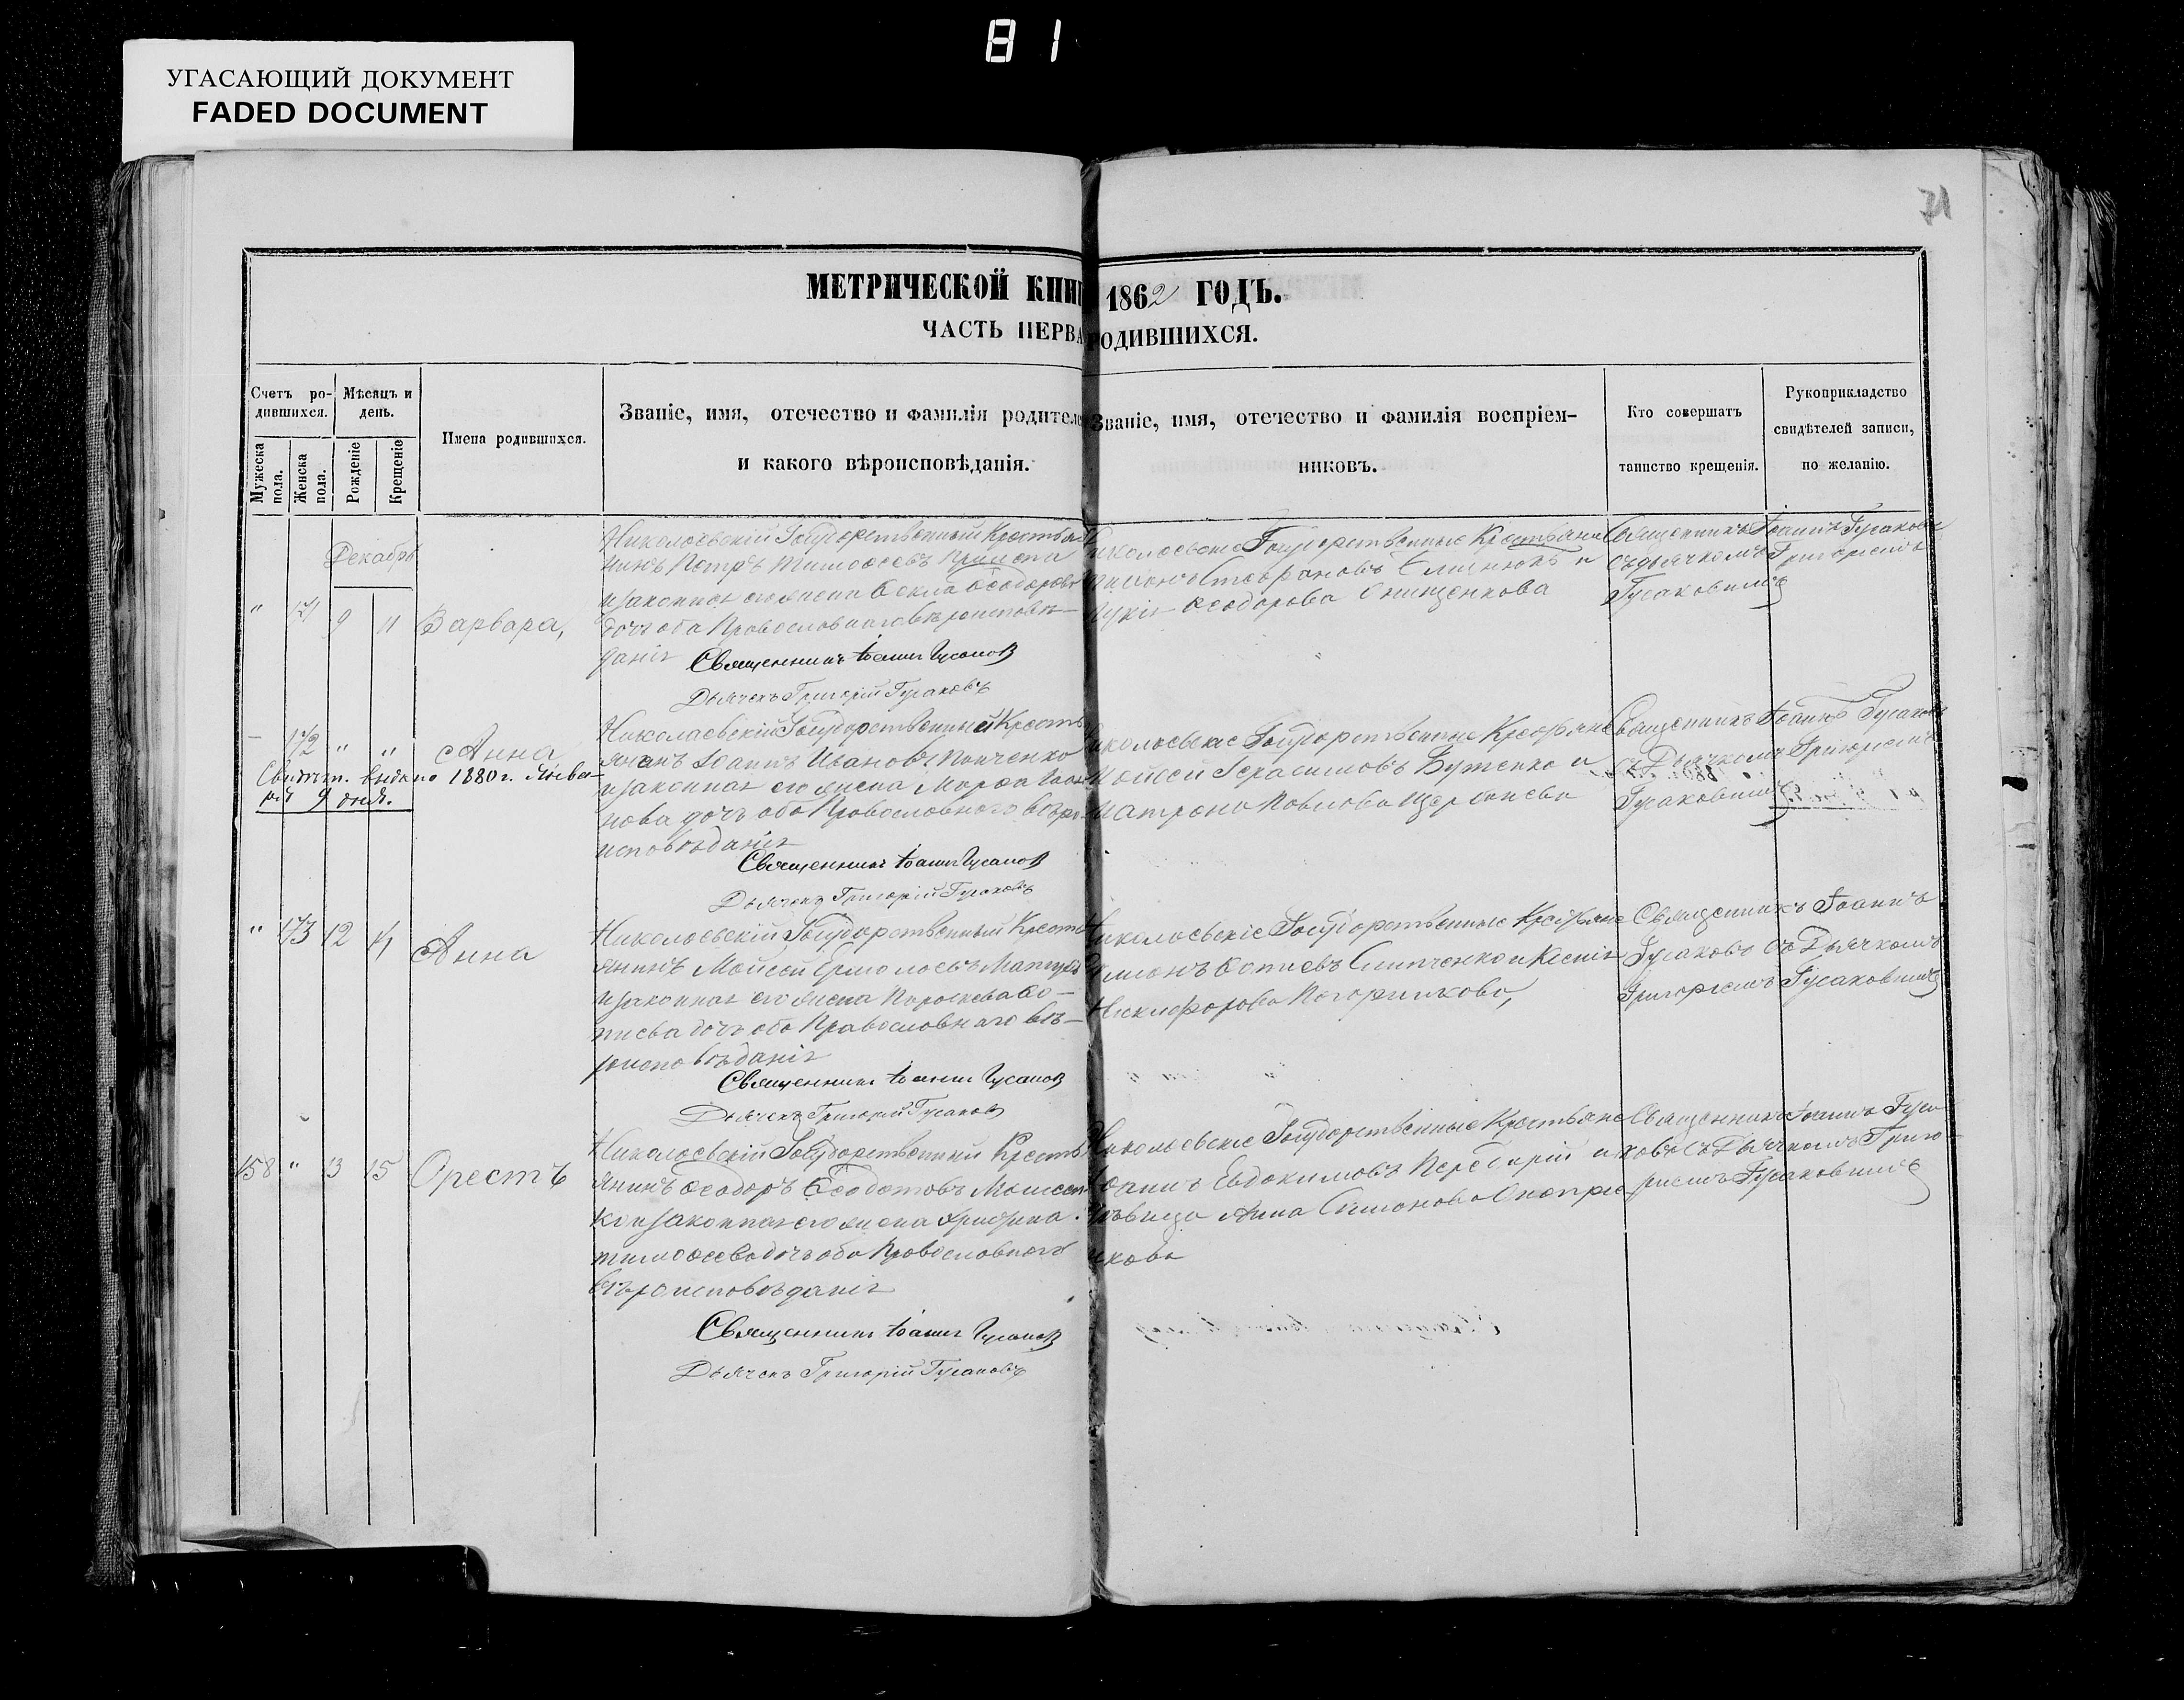 81
УГАСАЮЩИЙ ДОКУМЕНТ
FADED DOCUMENT
71
МЕТРИЧЕСКОЙ КНИГ 1862 ГОДЪ.
ЧАСТЬ ПЕРВА РОДИВШИХСЯ.
Счетъ ро-
дившихся.
Мужеска пола.
Женска пола.
Мѣсяцъ и
день.
Рожденіе
Крещеніе
Имена родившихся.
Званіе, имя, отечество и фамилія родителе
и какого вѣроисповѣданія.
Званіе, имя, отечество и фамилія воспріем-
никовъ.
Кто совершатъ
таинство крещенія.
Рукоприкладство
свидѣтелей записи,
по желанію.
Декабрь
" 171 9 11 Варвара,
Николаевскій Государственный Крестья
нинъ Петръ Тимоѳеевъ
и законная его жена Ѳекла Ѳеодоров
дочь оба Православнаго вѣроисповѣ-
данія
Священникъ Іоаннъ Гусаковъ
Дьячекъ Григорій Гусаковъ
Николаевскіе Государственные Крестьяне
Стефановъ и
Ѳеодорова Онищенкова
Священникъ Іоаннъ Гусаковъ
съ дьячкомъ Григоріемъ
Гусаковымъ
172 " " Анна
Свидѣт. выдано 1880 г. Янва-
ря 9 дня.
Николаевскій Государственный Кресть
янинъ Іоаннъ Ивановъ Панченко
и законная его жена Марѳа
нова дочь оба Православнаго вѣро
исповѣданія
Священникъ Іоаннъ Гусаковъ
Дьячекъ Григорій Гусаковъ
Николаевскіе Государственные Крестьяне
Мойсей Герасимовъ Бутенко и
Матрона Павлова Щербакова
Священникъ Іоаннъ Гусаковъ
съ Дьячкомъ Григоріемъ
Гусаковымъ
" 173 12 14 Анна
Николаевскій Государственный Кресть
янинъ Мойсей Ермолаевъ
и законная его жена Параскева Ѳо-
тиева дочь оба Православнаго вѣ-
роисповѣданія
Священникъ Іоаннъ Гусаковъ
Дьячекъ Григорій Гусаковъ
Николаевскіе Государственные Крестьяне
Слипченко и Ксенія
Никифорова
Священникъ Іоаннъ
Гусаковъ съ Дьячкомъ
Григоріемъ Гусаковымъ
158 " 13 15 Орестъ
Николаевскій Государственный Кресть
янинъ Ѳеодоръ Ѳеодотовъ Моисеен
ко и законная его жена Христина
Тимоѳеева дочь оба Православнаго
вѣроисповѣданія
Священникъ Іоаннъ Гусаковъ
Дьячекъ Григорій Гусаковъ
Николаевскіе Государственные Крестьяне
Іоаннъ Евдокимовъ и
дѣвица Анна Симонова Онопріе
нкова
Священникъ Іоаннъ Гуса
ковъ съ Дьячкомъ Григо
ріемъ Гусаковымъ